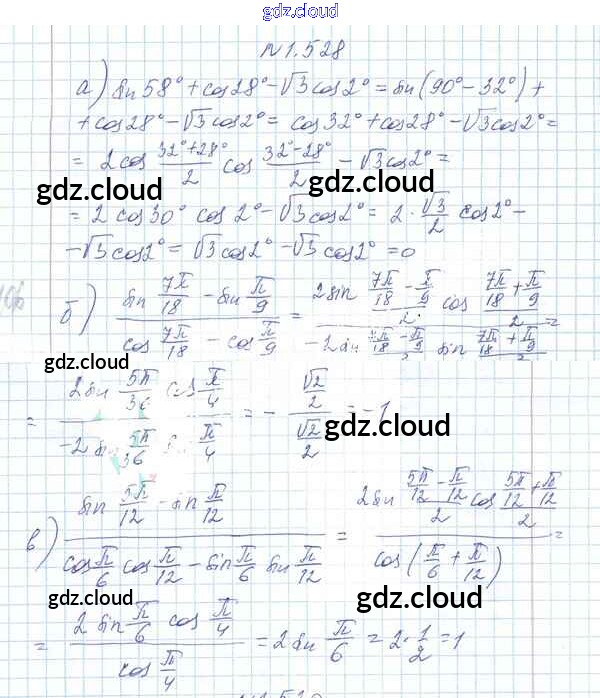 gdz.cloud
N 1.528
а) sin 58° + cos 28° − √3 cos 2° = sin (90° − 32°) +
+ cos 28° − √3 cos 2° = cos 32° + cos 28° − √3 cos 2° =
= 2 cos (32° + 28°)/2 cos (32° − 28°)/2 − √3 cos 2° =
gdz.cloud gdz.cloud
= 2 cos 30° cos 2° − √3 cos 2° = 2 · √3/2 cos 2° −
− √3 cos 2° = √3 cos 2° − √3 cos 2° = 0
gdz.cloud
б) (sin 7π/18 − sin π/9)/(cos 7π/18 − cos π/9) = (2 sin (7π/18 − π/9)/2 cos (7π/18 + π/9)/2)/(−2 sin (7π/18 − π/9)/2 sin (7π/18 + π/9)/2) =
gdz.cloud
= (2 sin 5π/36 cos π/4)/(−2 sin 5π/36 sin π/4) = − (√2/2)/(√2/2) = −1
gdz.cloud
в) (sin 5π/12 − sin π/12)/(cos π/6 cos π/12 − sin π/6 sin π/12) = (2 sin (5π/12 − π/12)/2 cos (5π/12 + π/12)/2)/(cos (π/6 + π/12)) =
gdz.cloud gdz.cloud
= (2 sin π/6 cos π/4)/(cos π/4) = 2 sin π/6 = 2 · 1/2 = 1
gdz.cloud gdz.cloud